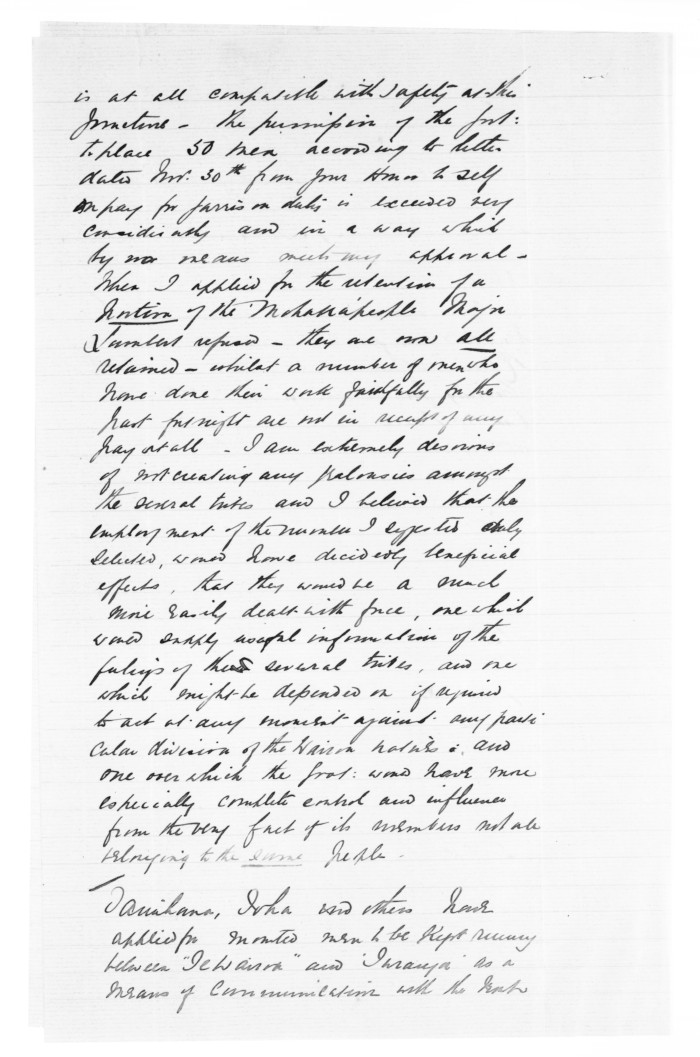 is at all compatible with safety at this
juncture – the permission of the Govt:
to place 50 men according to letter
dated Nov. 30th from your Honor to self
on pay for garrison duty is exceeded very
considerably and in a way which
by no means meets my approval –
When I applied for the retention of a
Portion of the Mohaka people Major
Lambert refused – they are now all
retained – whilst a number of men who
have done their work faithfully for the
past fortnight are not in receipt of any
pay at all – I am extremely desirous
of not creating any jealousies amongst
the several tribes and I believed that the
employment of the number I suggested duly
selected, would have decidedly beneficial
effects, that they would be a much
more easily dealt with force, one which
would supply useful information of the
feelings of the several tribes, and one
which might be depended on if required
to act at any moment against any parti
cular division of the Wairoa natives; and
one over which the Govt: would have more
especially complete control and influence
from the very fact of its members not all
belonging to the same people.
Ihaka and others have
applied for mounted men to be kept running
between "Te Wairoa" and "Turanga" as a
means of Communication with the